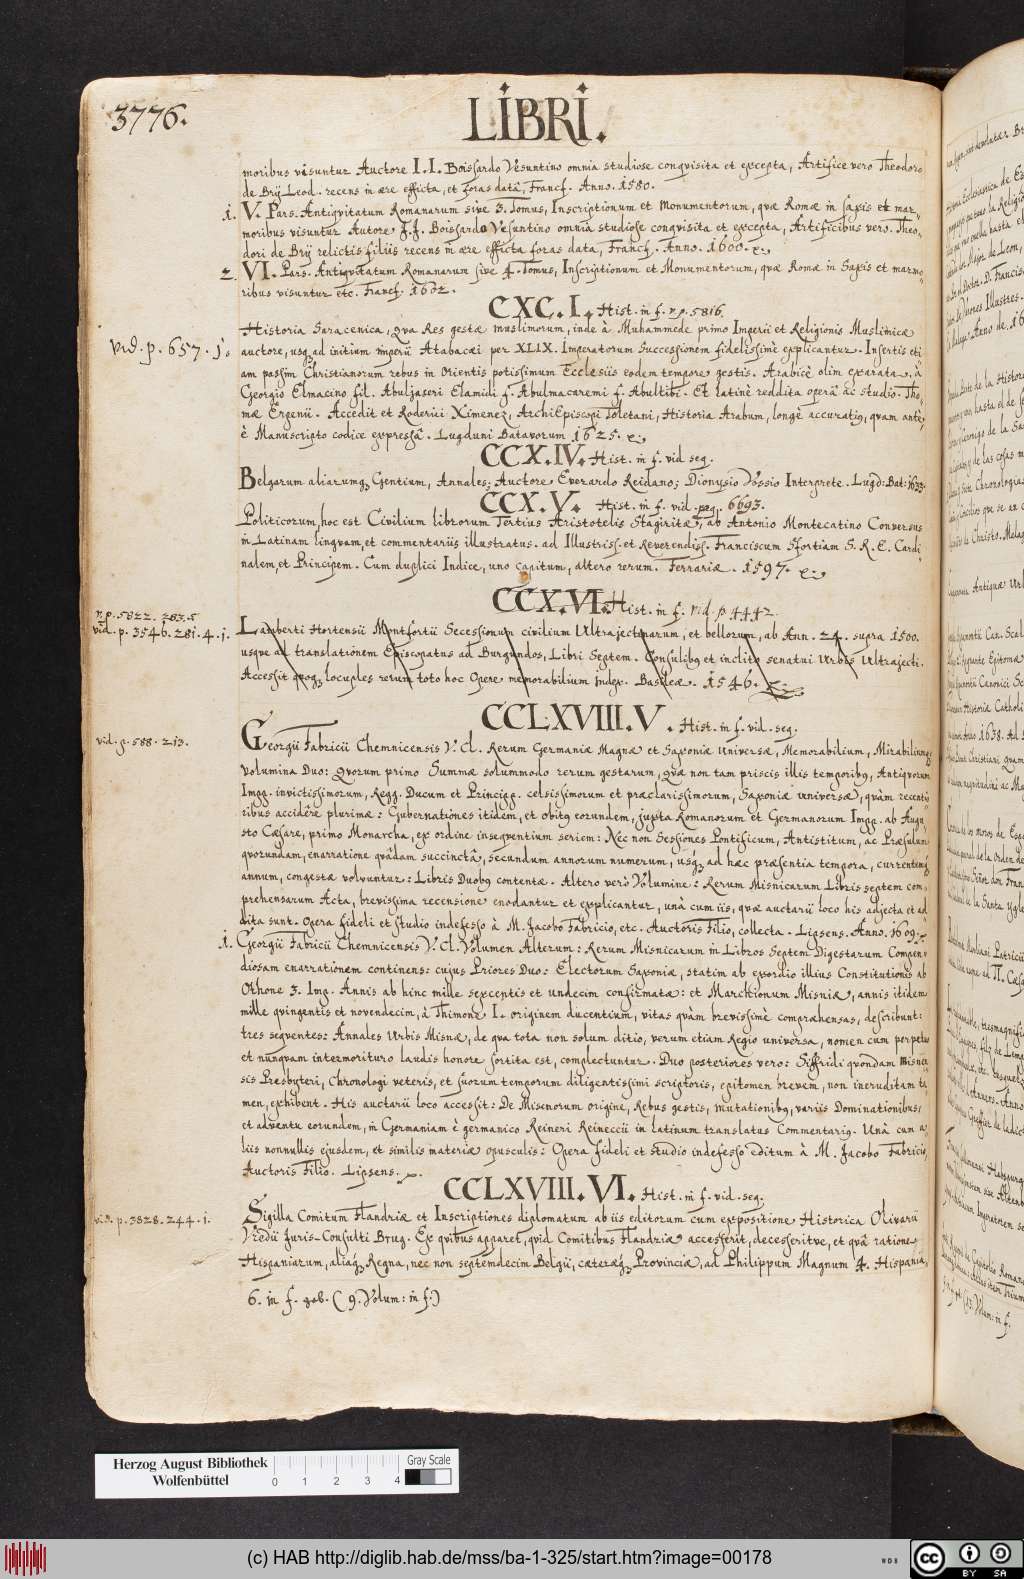 3776.
LIBRI.
moribus visuntur Auctore I. I. Boissardo Vesuntino omnia studiose conqvisita et excepta, Artifice vero Theodoro
de Brÿ Leod. recens in ære efficta, et foras data, Francf. Anno. 1580.
1. V. Pars. Antiqvitatum Romanarum sive 3. Tomus, Inscriptionum et Monumentorum, qvæ Romæ in saxis et mar-
moribus visuntur Autore J. J. Boissardo Vesuntino omnia studiose conqvisita et excepta, Artificibus vero. Theo-
dori de Brÿ relictis filiis recens in ære efficta foras data, Francf. Anno. 1600.
2. VI. Pars. Antiqvitatum Romanarum sive 4. Tomus, Inscriptionum et Monumentorum, qvæ Romæ in Saxis et marmo-
ribus visuntur etc. Francf. 1602.
CXC. I. Hist. in f. v. p. 5816.
Historia Saracenica, qva Res gestæ muslimorum, inde à Muhammede primo Imperii et Religionis Muslimicæ
vid. p. 657. 1.
auctore, usq ad initium imperii Atabacæi per XLIX. Imperatorum Successionem fidelissimè explicantur. Insertis eti-
am passim Christianorum rebus in Orientis potissimum Ecclesiis eodem tempore gestis. Arabicè olim exarata, à
Georgio Elmacino fil. Abuljaseri Elamidi f. Abulmacaremi f. Abultibi. Et latinè reddita operâ ac studio. Tho-
mæ Erpenii. Accedit et Roderici Ximenez, ArchiEpiscopi Toletani, Historia Arabum, longè accuratiq, qvam antè,
è Manuscripto codice expressâ. Lugduni Batavorum 1625.
CCX. IV. Hist. in f. vid seq.
Belgarum aliarumq Gentium, Annales; Auctore Everardo Reidano; Dionysio Vossio Interprete. Lugd: Bat: 1633.
CCX. V. Hist. in f. vid. pag. 6693.
Politicorum, hoc est Civilium librorum Tertius Aristotelis Stagiritæ, ab Antonio Montecatino Conversus
in Latinam lingvam, et commentariis illustratus. ad Illustriss. et Reverendiss. Franciscum Sfortiam S. R. E. Cardi-
nalem, et Principem. Cum duplici Indice, uno capitum, altero rerum. Ferrariæ. 1597.
CCX. VI. Hist. in f. vid. p. 4442.
v. p. 5822. 283.5
vid. p. 3546. 281. 4. 1.
Lamberti Hortensii Montfortii Secessionum civilium Ultrajectinarum, et bellorum, ab Ann. 24. supra 1500.
usqve ad translationem Episcopatus ad Burgundos, Libri Septem. Consulibq et inclito senatui Urbis Ultrajecti.
Accessit qvoq locuples rerum toto hoc Opere memorabilium Index. Basileæ. 1546.
CCLXVIII. V. Hist. in f. vid. seq.
vid. p. 588. 213.
Georgii Fabricii Chemnicensis V. Cl. Rerum Germaniæ Magnæ et Saxoniæ universæ, Memorabilium, Mirabiliumq
volumina Duo: Qvorum primo Summæ solummodo rerum gestarum, qvæ non tam priscis illis temporibq, Antiqvorum
Impp. invictissimorum, Regg. Ducum et Principp. celsissimorum et præclarissimorum, Saxoniæ universæ, qvàm recenti-
ribus accidêre plurimæ: Gubernationes itidem, et obitq eorundem, juxta Romanorum et Germanorum Impp. ab Augu-
sto Cæsare, primo Monarcha, ex ordine inseqventium seriem: Nec non Sessiones Pontificum, Antistitum, ac Præsulum
qvorundam, enarratione qvâdam succinctâ, secundum annorum numerum, usq ad hæc præsentia tempora, currentemq
annum, congestæ volvuntur: Libris Duobq contentæ. Altero verò Volumine: Rerum Misnicarum Libris septem com-
prehensarum Acta, brevissima recensione enodantur et explicantur, unà cum iis, qvæ auctarii loco his adjecta et ad-
dita sunt. Opera fideli et studio indefesso à M. Jacobo Fabricio, etc. Auctoris Filio, collecta. Lipsens. Anno. 1609.
1. Georgii Fabricii Chemnicensis V. Cl. Volumen Alterum: Rerum Misnicarum in Libros Septem Digestarum Compen-
diosam enarrationem continens: cujus Priores Duo: Electorum Saxoniæ, statim ab exordio illius Constitutionis ab
Othone 3. Imp. Annis ab hinc mille sexcentis et undecim confirmatæ: et Marchionum Misniæ, annis itidem
mille qvingentis et novendecim, à Thimone I. originem ducentium, vitas qvàm brevissimè compræhensas, describunt:
tres seqventes: Annales Urbis Misnæ, de qva tota non solum ditio, verum etiam Regio universa, nomen cum perpetuo
et nunqvam intermorituro laudis honore sortita est, complectuntur. Duo posteriores vero: Siffridi qvondam Misnen-
sis Presbyteri, Chronologi veteris, et suorum temporum diligentissimi scriptoris, epitomen brevem, non ineruditam ta-
men, exhibent. His auctarii loco accessit: De Misenorum origine, Rebus gestis, mutationibq, variis Dominationibus,
et adventu eorundem, in Germaniam è germanico Reineri Reineccii in latinum translatus Commentariq. Unà cum a-
liis nonnullis ejusdem, et similis materiæ opusculis: Opera fideli et studio indefesso editum à M. Jacobo Fabricio
Auctoris Filio. Lipsens.
CCLXVIII. VI. Hist. in f. vid. seq.
vid. p. 3828. 244. 1.
Sigilla Comitum Flandriæ et Inscriptiones diplomatum ab iis editorum cum expositione Historica Olivarii
Vredii Juris-Consulti Brug. Ex qvibus apparet, qvid Comitibus Flandriæ accesserit, decesseritve, et qvâ ratione
Hispaniarum, aliaq Regna, nec non septemdecim Belgii, cæteræq Provinciæ, ad Philippum Magnum 4. Hispaniâ,
6. in f. geb. (9. Volum: in f:)
Herzog August Bibliothek
Wolfenbüttel
0 1 2 3 4
Gray Scale
(c) HAB http://diglib.hab.de/mss/ba-1-325/start.htm?image=00178
WDB
cc BY SA